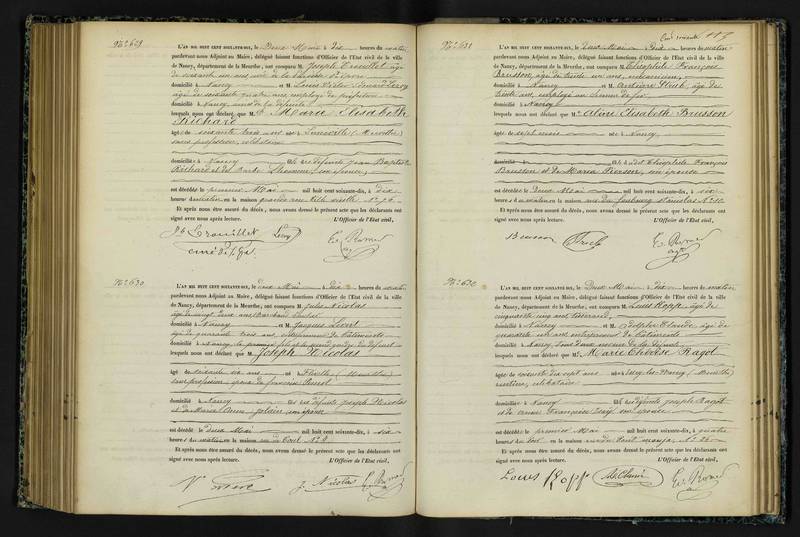 Nº 629
L'AN MIL HUIT CENT SOIXANTE-DIX, le Deux Mai à Dix heures du matin
pardevant nous Adjoint au Maire, délégué faisant fonctions d'Officier de l'Etat civil de la ville
de Nancy, département de la Meurthe, ont comparu M. Joseph Trouillet âgé
de soixante un ans, curé de la
domicilié à Nancy et M. Louis Victor Leroy
âgé de soixante quatre ans, employé de préfecture
domicilié à Nancy, amis de la défunte
lesquels nous ont déclaré que M. Marie Elisabeth
Richard
âgé de soixante trois ans né à Lunéville (Meurthe)
sans profession, célibataire
domicilié à Nancy fille des défunts Jean Baptiste
Richard et de son épouse,
est décédé le premier Mai mil huit cent soixante-dix, à dix
heures du matin en la maison grande rue Ville vieille Nº
Et après nous être assuré du décès, nous avons dressé le présent acte que les déclarants ont
signé avec nous après lecture. L'Officier de l'Etat civil,
Trouillet Leroy
Nº 630
L'AN MIL HUIT CENT SOIXANTE-DIX, le deux Mai à dix heures du matin
pardevant nous Adjoint au Maire, délégué faisant fonctions d'Officier de l'Etat civil de la ville
de Nancy, département de la Meurthe, ont comparu M. Jules Nicolas
âgé de vingt deux ans
domicilié à Nancy et M. Jacques
âgé de quarante trois ans, entrepreneur de bâtiments
domicilié à Nancy, le premier fils et le second gendre du défunt
lesquels nous ont déclaré que M. Joseph Nicolas
âgé de soixante ans né à (Meurthe)
sans profession, époux de françoise
domicilié à Nancy fils des défunts Joseph Nicolas
et de Marie Anne son épouse
est décédé le deux Mai mil huit cent soixante-dix, à six
heures du matin en la maison rue de Toul Nº
Et après nous être assuré du décès, nous avons dressé le présent acte que les déclarants ont
signé avec nous après lecture. L'Officier de l'Etat civil,
J. Nicolas
117
Nº 631
L'AN MIL HUIT CENT SOIXANTE-DIX, le Deux Mai à Dix heures du matin
pardevant nous Adjoint au Maire, délégué faisant fonctions d'Officier de l'Etat civil de la ville
de Nancy, département de la Meurthe, ont comparu M. Théophile François
Brusson, âgé de trente un ans, mécanicien,
domicilié à Nancy et M. Antoine âgé de
trente ans, employé au chemin de fer
domicilié à Nancy
lesquels nous ont déclaré que M. Aline Elisabeth Brusson
âgé de sept mois né à Nancy
domicilié à fille de Théophile François
Brusson et de Maria son épouse
est décédé le Deux Mai mil huit cent soixante-dix, à six
heures du matin en la maison rue du faubourg Stanislas Nº
Et après nous être assuré du décès, nous avons dressé le présent acte que les déclarants ont
signé avec nous après lecture. L'Officier de l'Etat civil,
Brusson
Nº 632
L'AN MIL HUIT CENT SOIXANTE-DIX, le Deux Mai à Dix heures du matin
pardevant nous Adjoint au Maire, délégué faisant fonctions d'Officier de l'Etat civil de la ville
de Nancy, département de la Meurthe, ont comparu M. Louis Kopp, âgé de
cinquante cinq ans, tisserand
domicilié à Nancy et M. Adolphe Claude, âgé de
quarante ans, entrepreneur de bâtiments
domicilié à Nancy, tous deux neveux de la défunte
lesquels nous ont déclaré que M. Marie Thérèse Ragot
âgé de soixante dix sept ans né à Essey-les-Nancy (Meurthe)
rentière, célibataire
domicilié à Nancy fille des défunts Joseph Ragot
et de Anne Françoise son épouse
est décédé le premier Mai mil huit cent soixante-dix, à quatre
heures du soir en la maison rue du
Et après nous être assuré du décès, nous avons dressé le présent acte que les déclarants ont
signé avec nous après lecture. L'Officier de l'Etat civil,
Louis Kopp